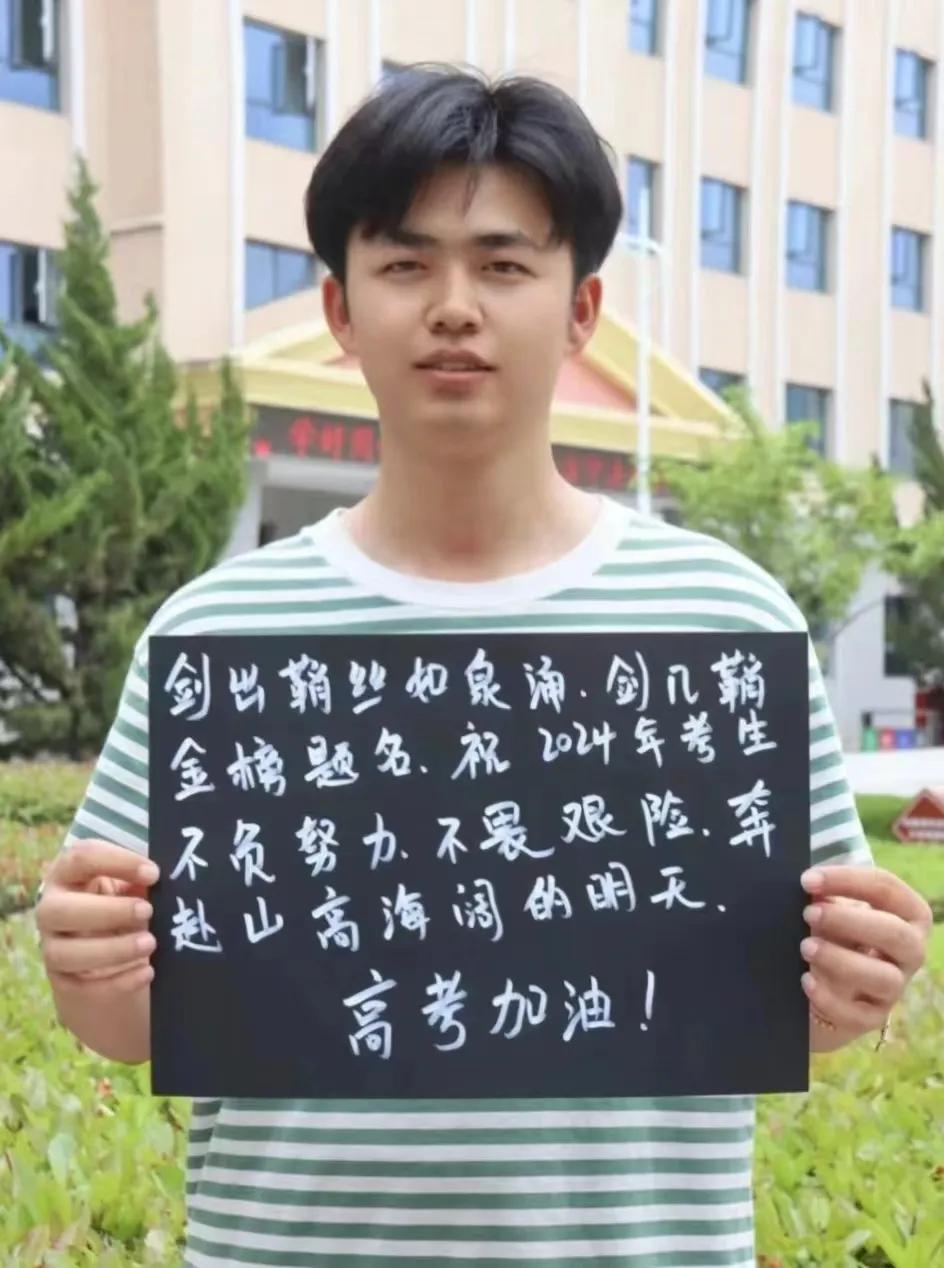 剑出鞘丝如泉涌.剑几鞘
金榜题名、祝2024年考生
不负努力、不畏艰险、奔
赴山高海阔的明天.
高考加油!